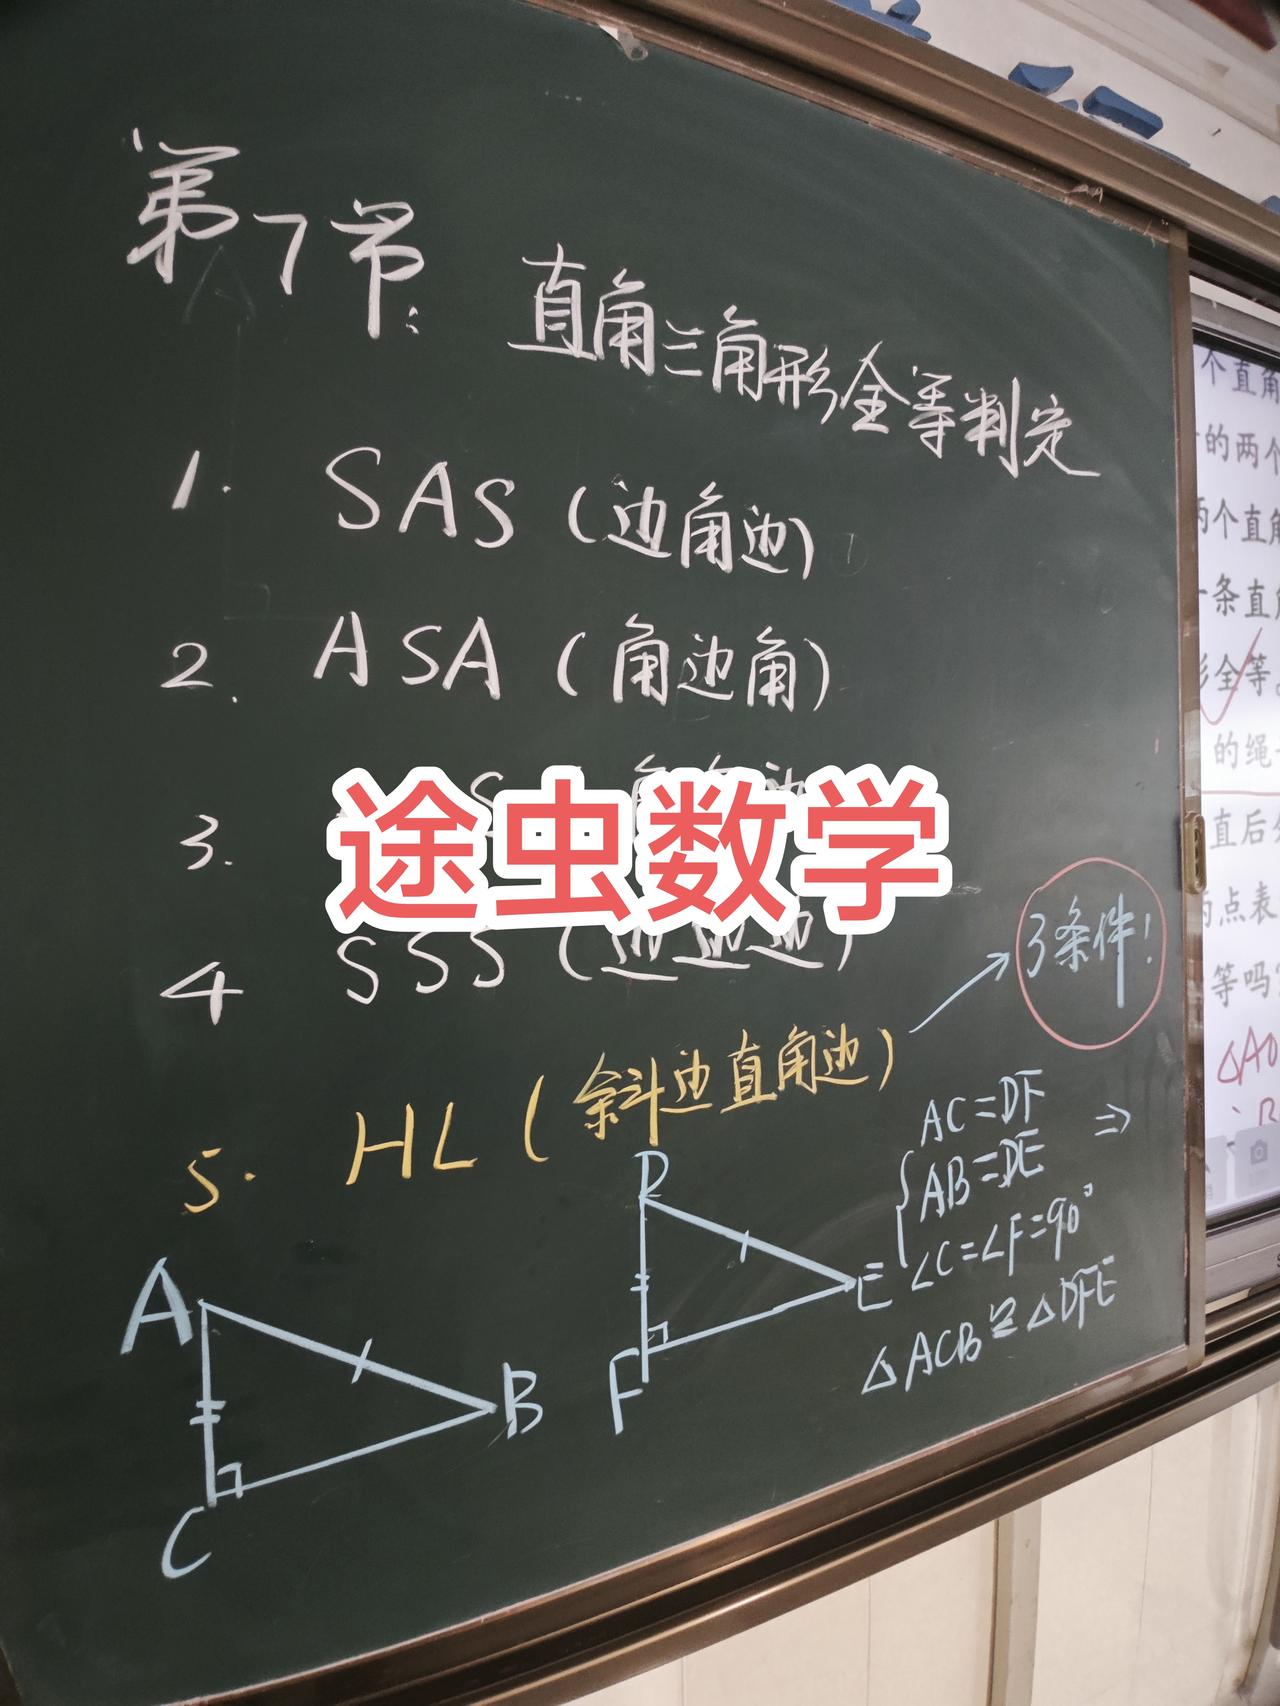 第7节: 直角三角形全等判定
1. SAS (边角边)
2. ASA (角边角)
3.
途虫数学
4 SSS (边边边)
5. HL (斜边直角边)
3条件!
AC=DF
AB=DE ⇒
∠C=∠F=90°
△ACB≌△DFE
A
B
C
D
E
F
个直角
的两个
两个直角
条直角
形全等。
的绳
直后
两点表
等吗